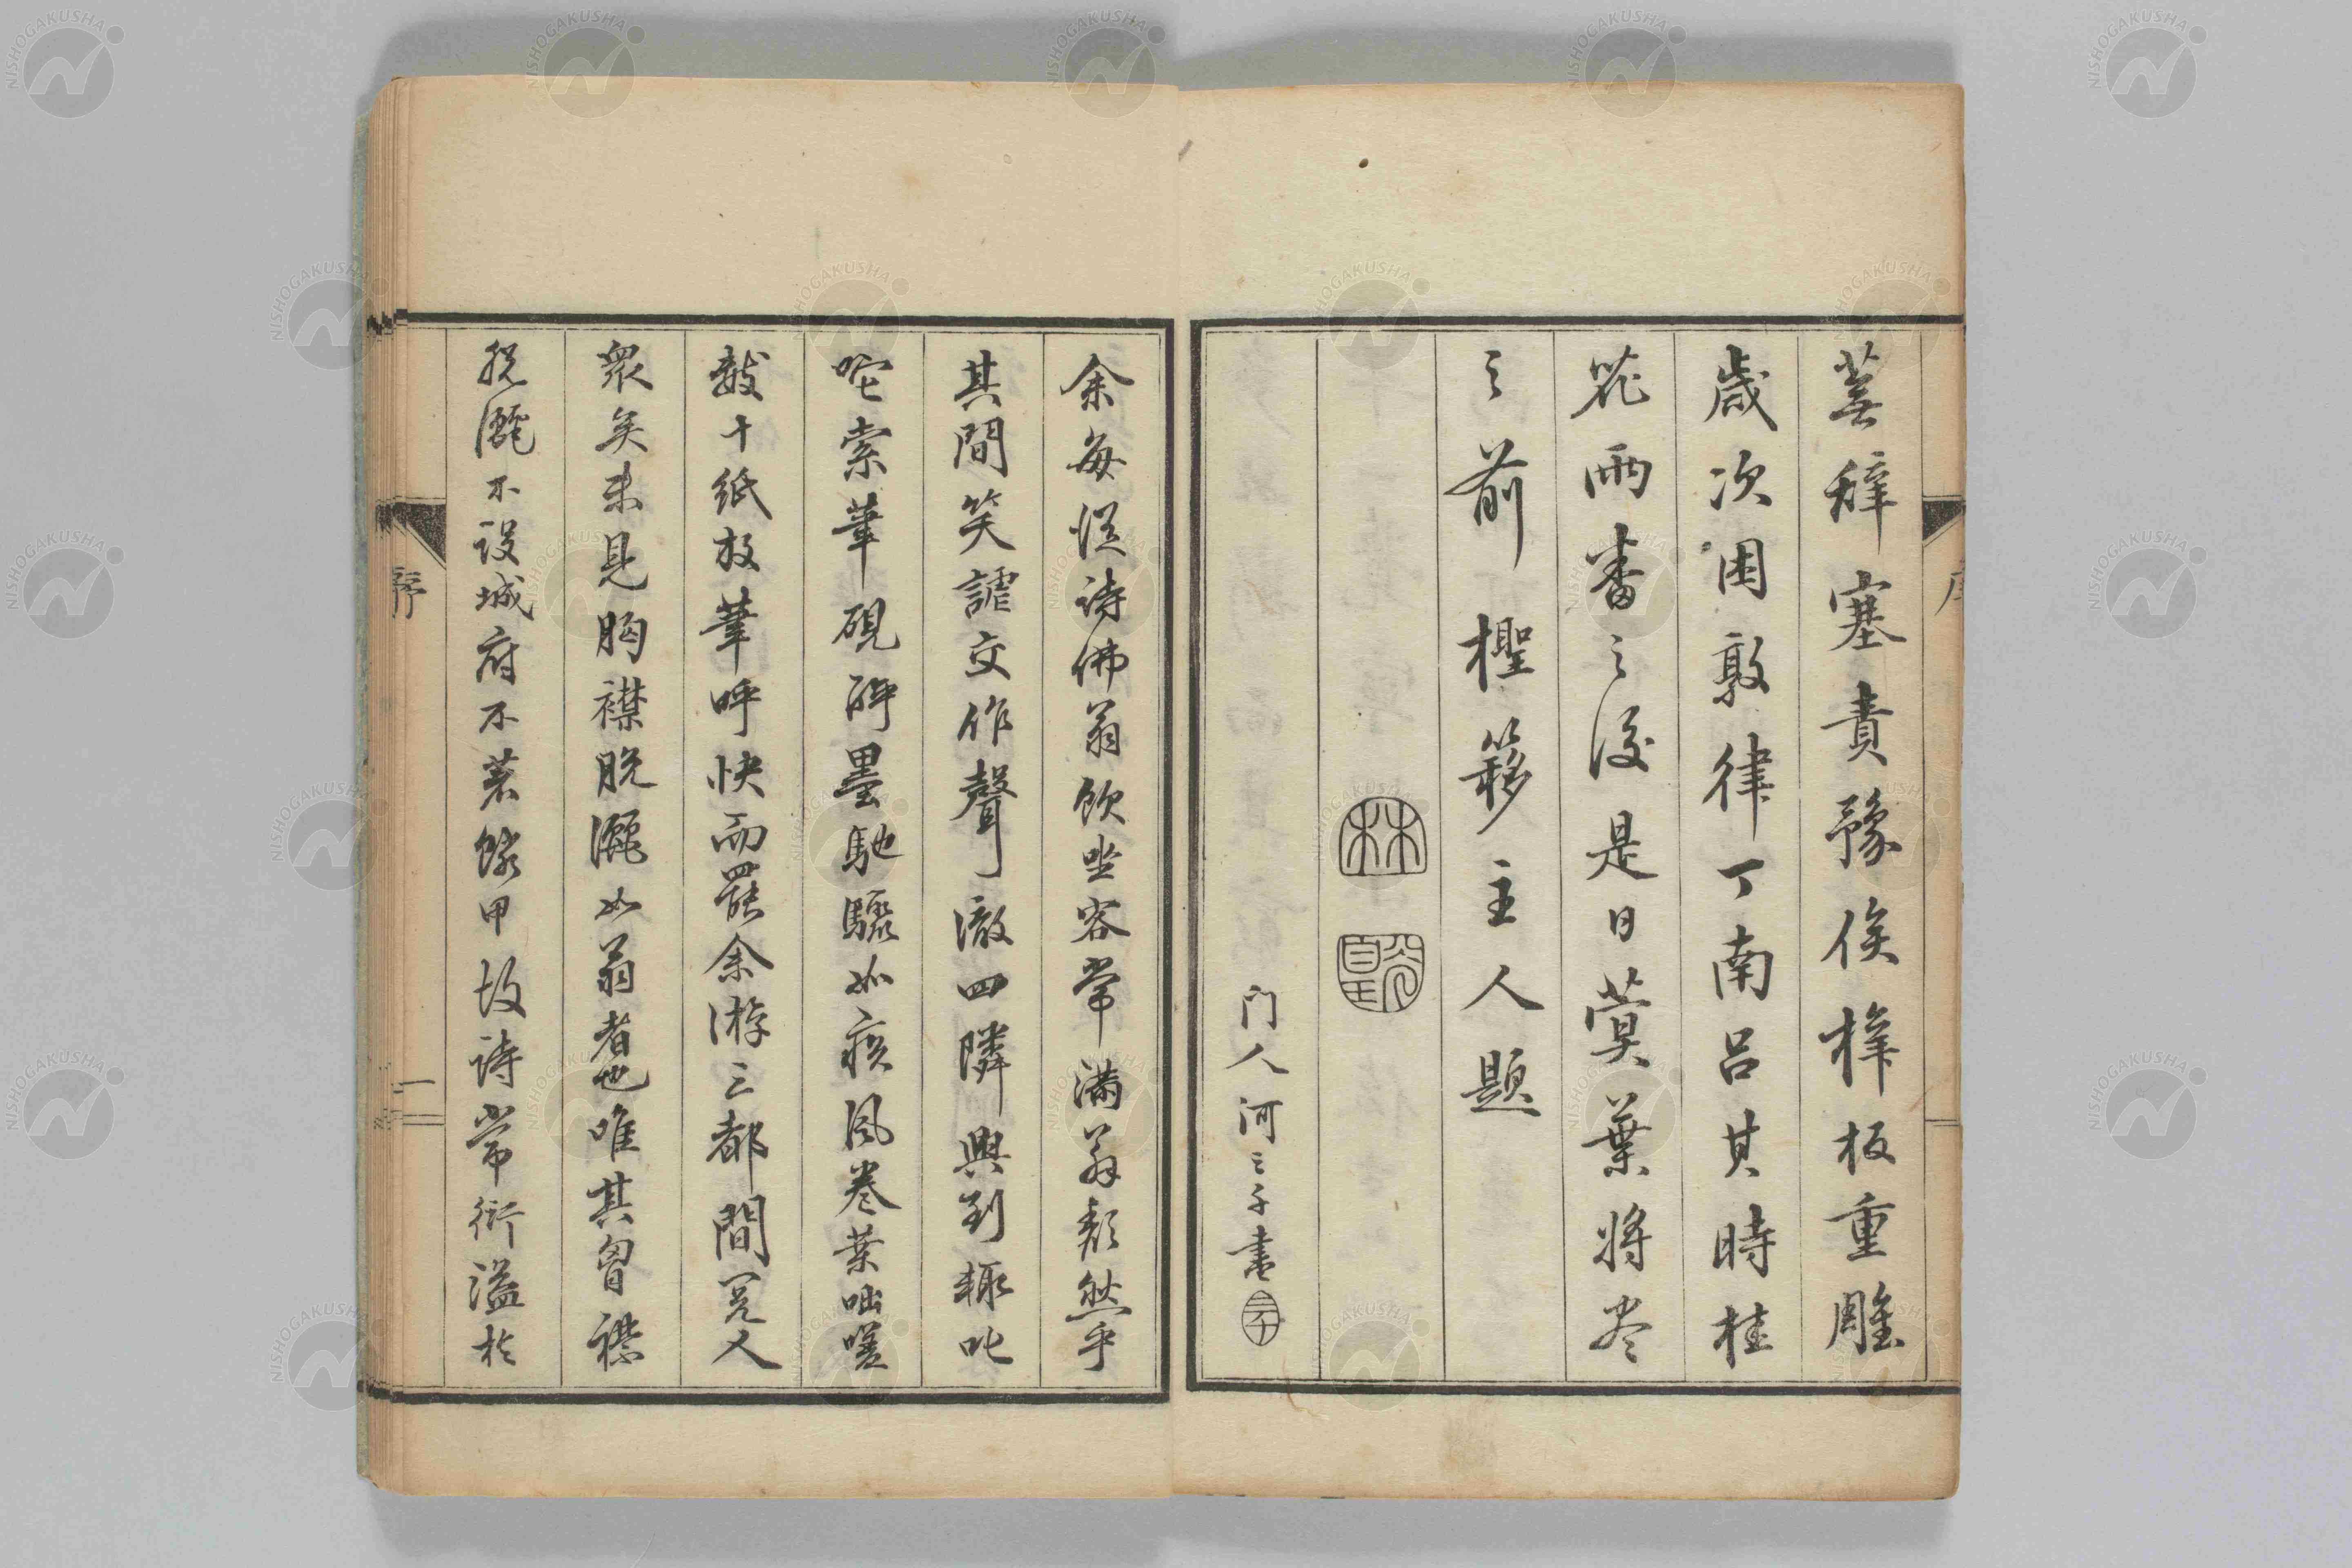 蕪辭塞責豫俟梓板重雕
歲次困敦律丁南呂其時桂
花雨番之後是日蓂葉將尽
之前檉簃主人題
林
皇
门人河三千書
三千
余每從詩佛翁飲坐客常滿翁頽然乎
其間笑謔交作聲徹四隣興到輙叱
咤索筆硯研墨馳驟如疾風卷葉咄嗟
數十紙投筆呼快而罷余游三都間閲人
衆矣未見胸襟脱灑如翁者也唯其胷襟
脱灑不設城府不著鱗甲故詩常衍溢於
序
一
NISHOGAKUSHA